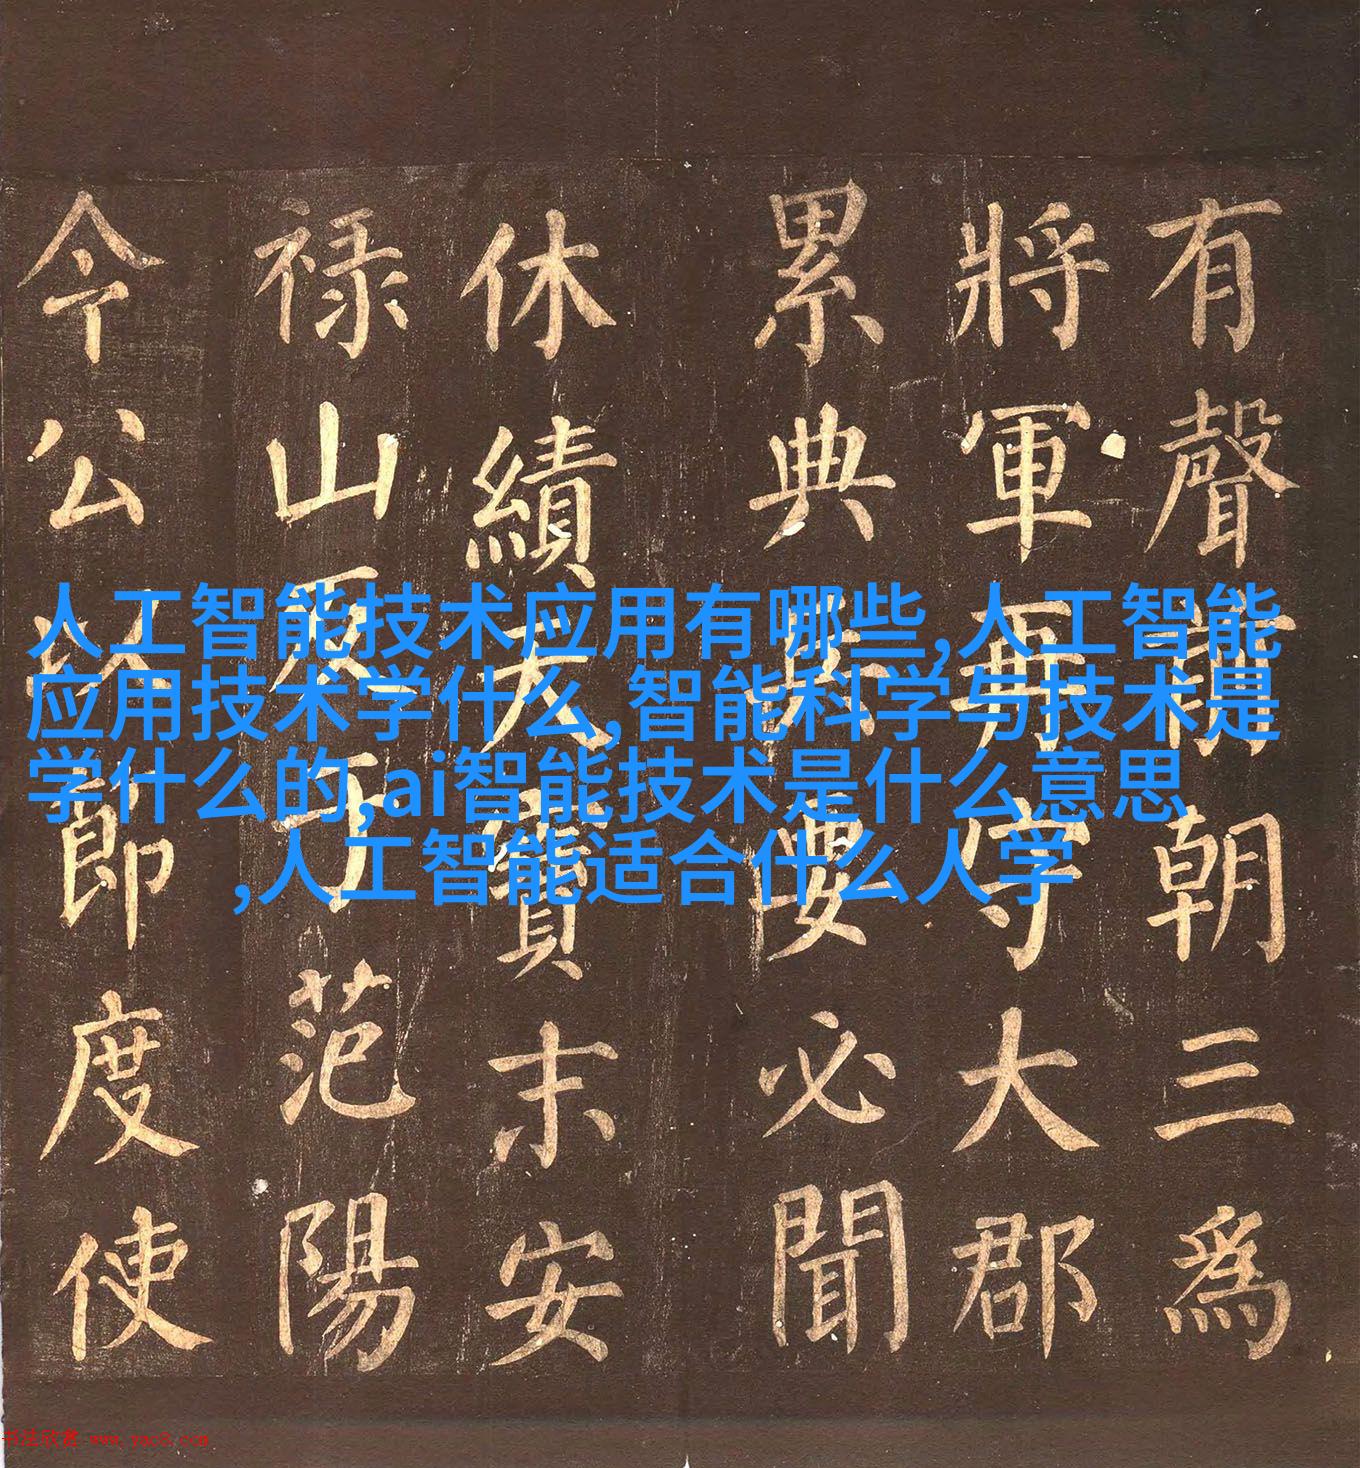 人工智能技术应用有哪些,人工智能
应用技术学什么,智能科学与技术是
学什么的,ai智能技术是什么意思
,人工智能适合什么人学
有聲朝三為
將軍再守大郡
累典兵要必聞
休績天寶末安
禄山反范陽
今公以節度使
书法欣赏 www.yac8.com